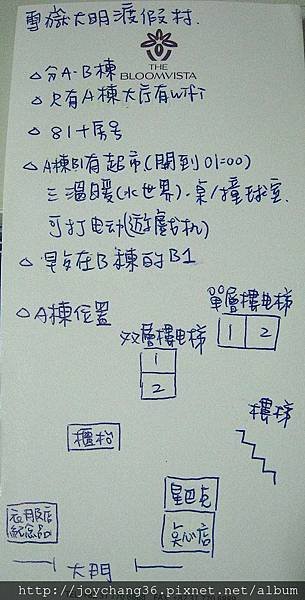 雪嶽大明渡假村.
THE
BLOOMVISTA
△分A-B棟
△只有A棟大厅有wifi
△81+房号
△A棟B1有超市(開到01:00)
三溫暖(水世界).桌/撞球室.
可打电动(遊戲机)
△早歺在B棟的B1
△A棟位置
單層樓电梯
1 2
双層樓电梯
1
2
樓梯
櫃枱
星巴克
点心店
衣服店
紀念品
大門
http://joychang36.pixnet.net/album